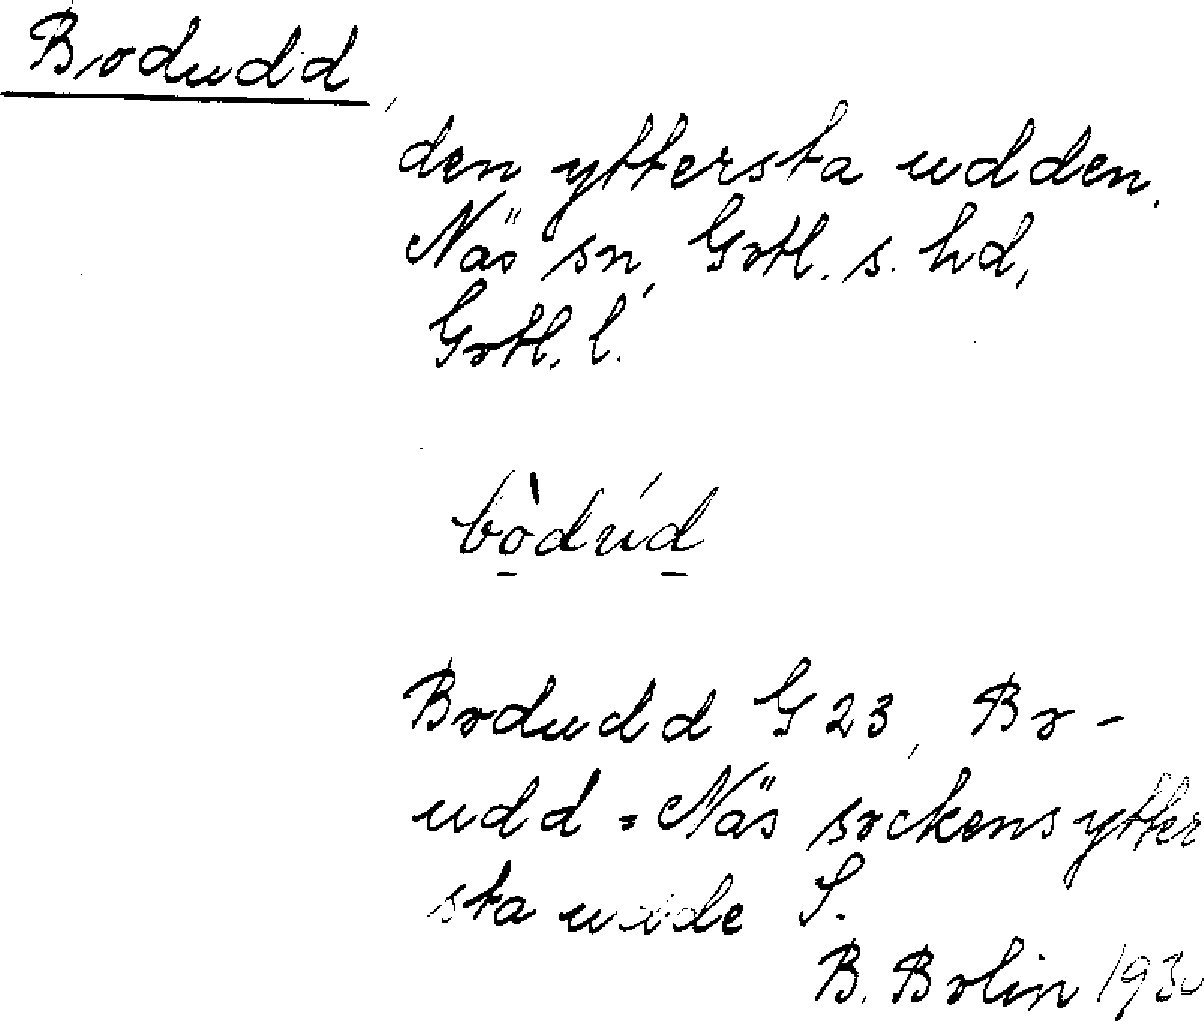 Bodudd,
den yttersta udden.
Näs sn, Gotl. s. hd,
Gotl. l.
bò̲dúd̲
Bodudd G 23, Bo-
udd = Näs sockens ytter
sta udde S.
B. Bolin 1930